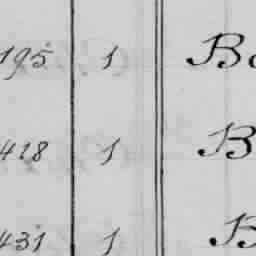 195 1 Bo
418 1 B
431 1 B